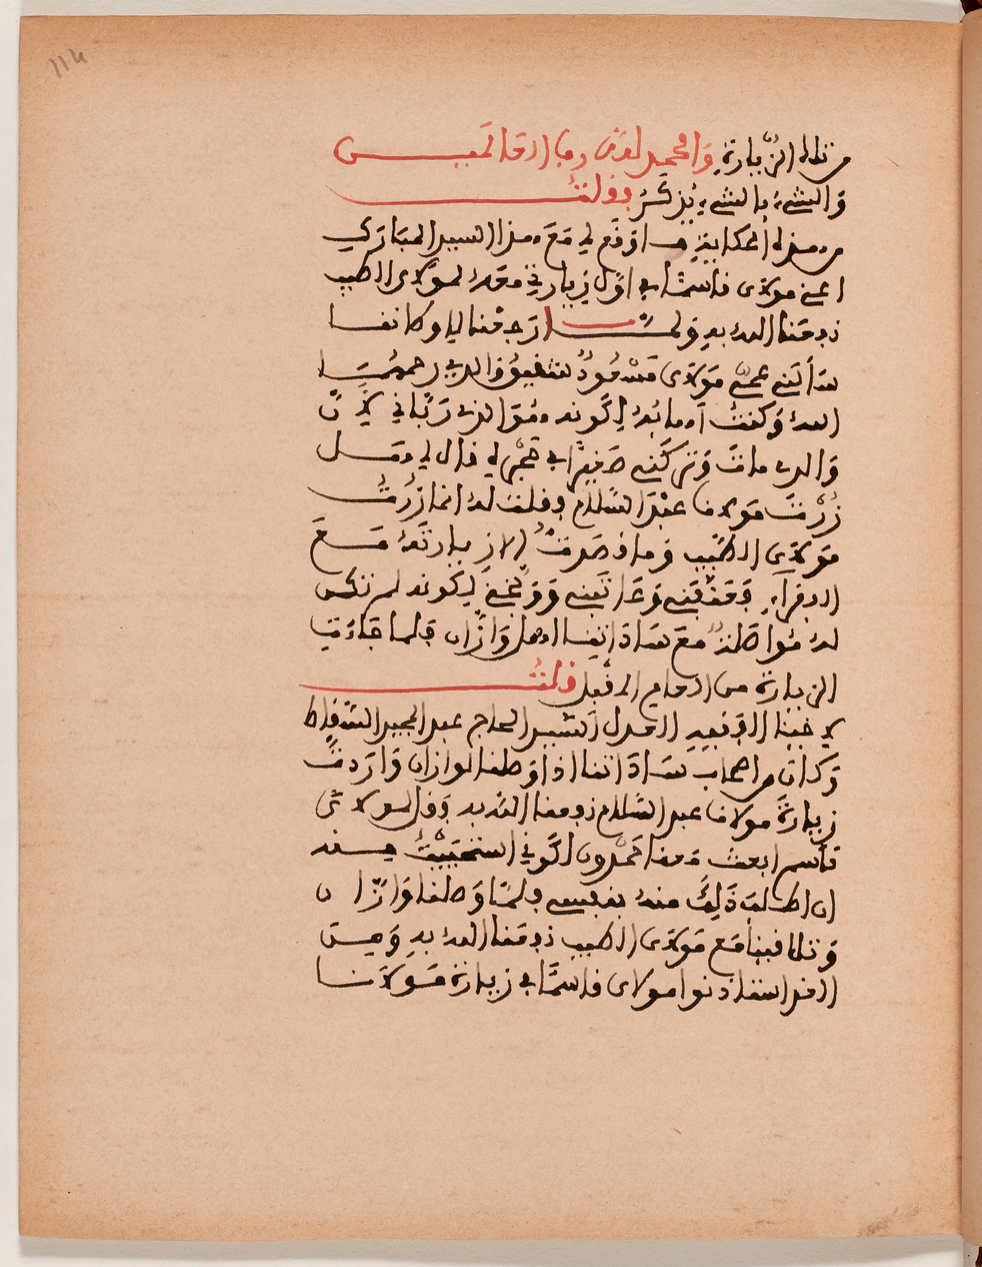 114
من تلك الزيارة وَالحمد لله رب العالمين
وَالشيءُ بالشيءِ يُذكَرُ فقولت
من هذه الحكاية ما وَقع لي مَعَ هذا السيد المبَارَك
اعني مولاي قاسمًا في اوّل زيارتي معه لمولاي الطيب
نفعنا الله به وَلمّا رَجعنا الى اوكانفا
سَألني عمّي مَولاي مَسْعُودُ شقيقُ والدي رحمهُمَا
اللهُ وَكنتُ اهابُهُ لِكونه هُوَ الذي رَبّاني لانّ
وَالدي ماتَ وَتركَني صَغيرًا في حَجْره قال لي هَل
زُرْتَ مَولانا عبْدَ السّلام فقلت له انما زُرْتُ
مَولاي الطيّب وَما قصَدتُ الا زيارتَهُ مَعَ
الفقراءِ فعَنّفني وَعَاتَبني وَوَبّخني لِكونه لم تكن
له مُواصلةٌ مَعَ سَادَاتِنا اهل وَازّان فلما جَاءَت
الزيارة من العام المقبل قلتُ
لاخينا الفقيه العدل السّيد الحاج عبد المجيد الشفاط
وَكان من اصحاب سَادَاتنا اذا وَصلنا لوازان وَارَدتَ
زيارَةَ مولانا عبد السّلام نفعنا الله به وَقل لمولاي
قاسم ابعث مَعنا حَمْدون لكوني استَحيَيْتُ منه
ان اطلبَ ذَلِكَ منهُ بنفسي فلمّا وَصلنا وَازّان
وَتلاقينا مَع مَولاي الطيب نفعنا الله به وَمِن
الغد استاذنوا مولاي قاسمًا في زيارة مَولانا